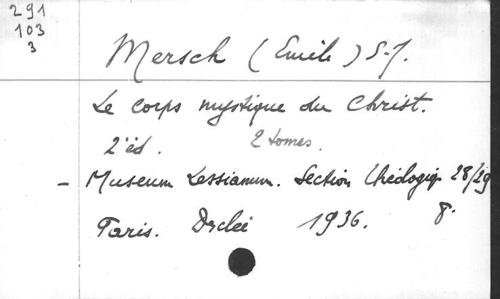 291
103
3
Mersch (Emile) S.J.
Le corps mystique du Christ.
2e éd. 2 tomes.
- Museum Lessianum. Section théologiq 28/29
8.
Paris. Desclée 1936.